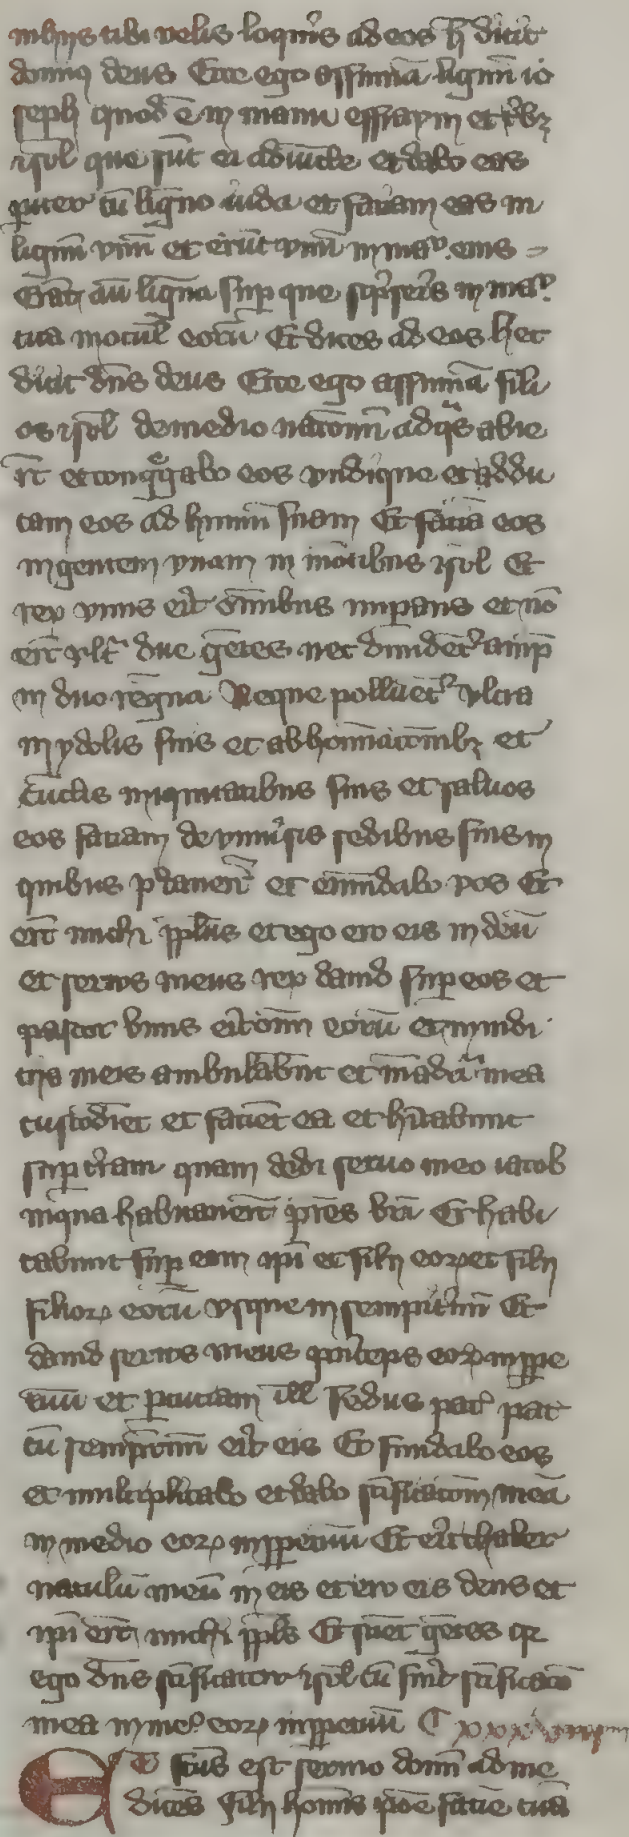 in hiis tibi velis loqueris ad eos hec dicit
dominus deus Ecce ego assumam lignum io
seph quod est in manu effraym et tribus
israel que sunt ei adiuncte et dabo eas
pariter cum ligno iuda et faciam eas in
lignum unum et erunt unum in manu eius
Erunt autem ligna super que scripseris in manu
tua in oculis eorum Et dices ad eos hec
dicit dominus deus Ecce ego assumam fili
os israel de medio nationum ad quas abie
runt et congregabo eos undique et addu
cam eos ad humum suam Et faciam eos
in gentem unam in montibus israel Et
rex unus erit omnibus imperans et non
erunt ultra due gentes nec dividentur amplius
in duo regna Neque polluentur ultra
in ydolis suis et abhominationibus et
cunctis iniquitatibus suis et salvos
eos faciam de universis sedibus suis in
quibus peccaverunt et emundabo eos Et
erunt michi populus et ego ero eis in deum
Et servus meus rex david super eos et
pastor unus erit omnium eorum et in iudi
ciis meis ambulabunt et mandata mea
custodient et facient ea et habitabunt
super terram quam dedi servo meo iacob
in qua habitaverunt patres vestri Et habi
tabunt super eam ipsi et filii eorum et filii
filiorum eorum usque in sempiternum Et
david servus meus princeps eorum in perpe
tuum et percutiam illis fedus pacis pac
tum sempiternum erit eis Et fundabo eos
et multiplicabo et dabo sanctificationem meam
in medio eorum in perpetuum Et erit thaber
naculum meum in eis et ero eis deus et
ipsi erunt michi populus Et scient gentes quia
ego dominus sanctificator israel cum fuerit sanctificatio
mea in medio eorum in perpetuum C xxxviii
Et factus est sermo domini ad me
dicens Fili hominis pone faciem tuam